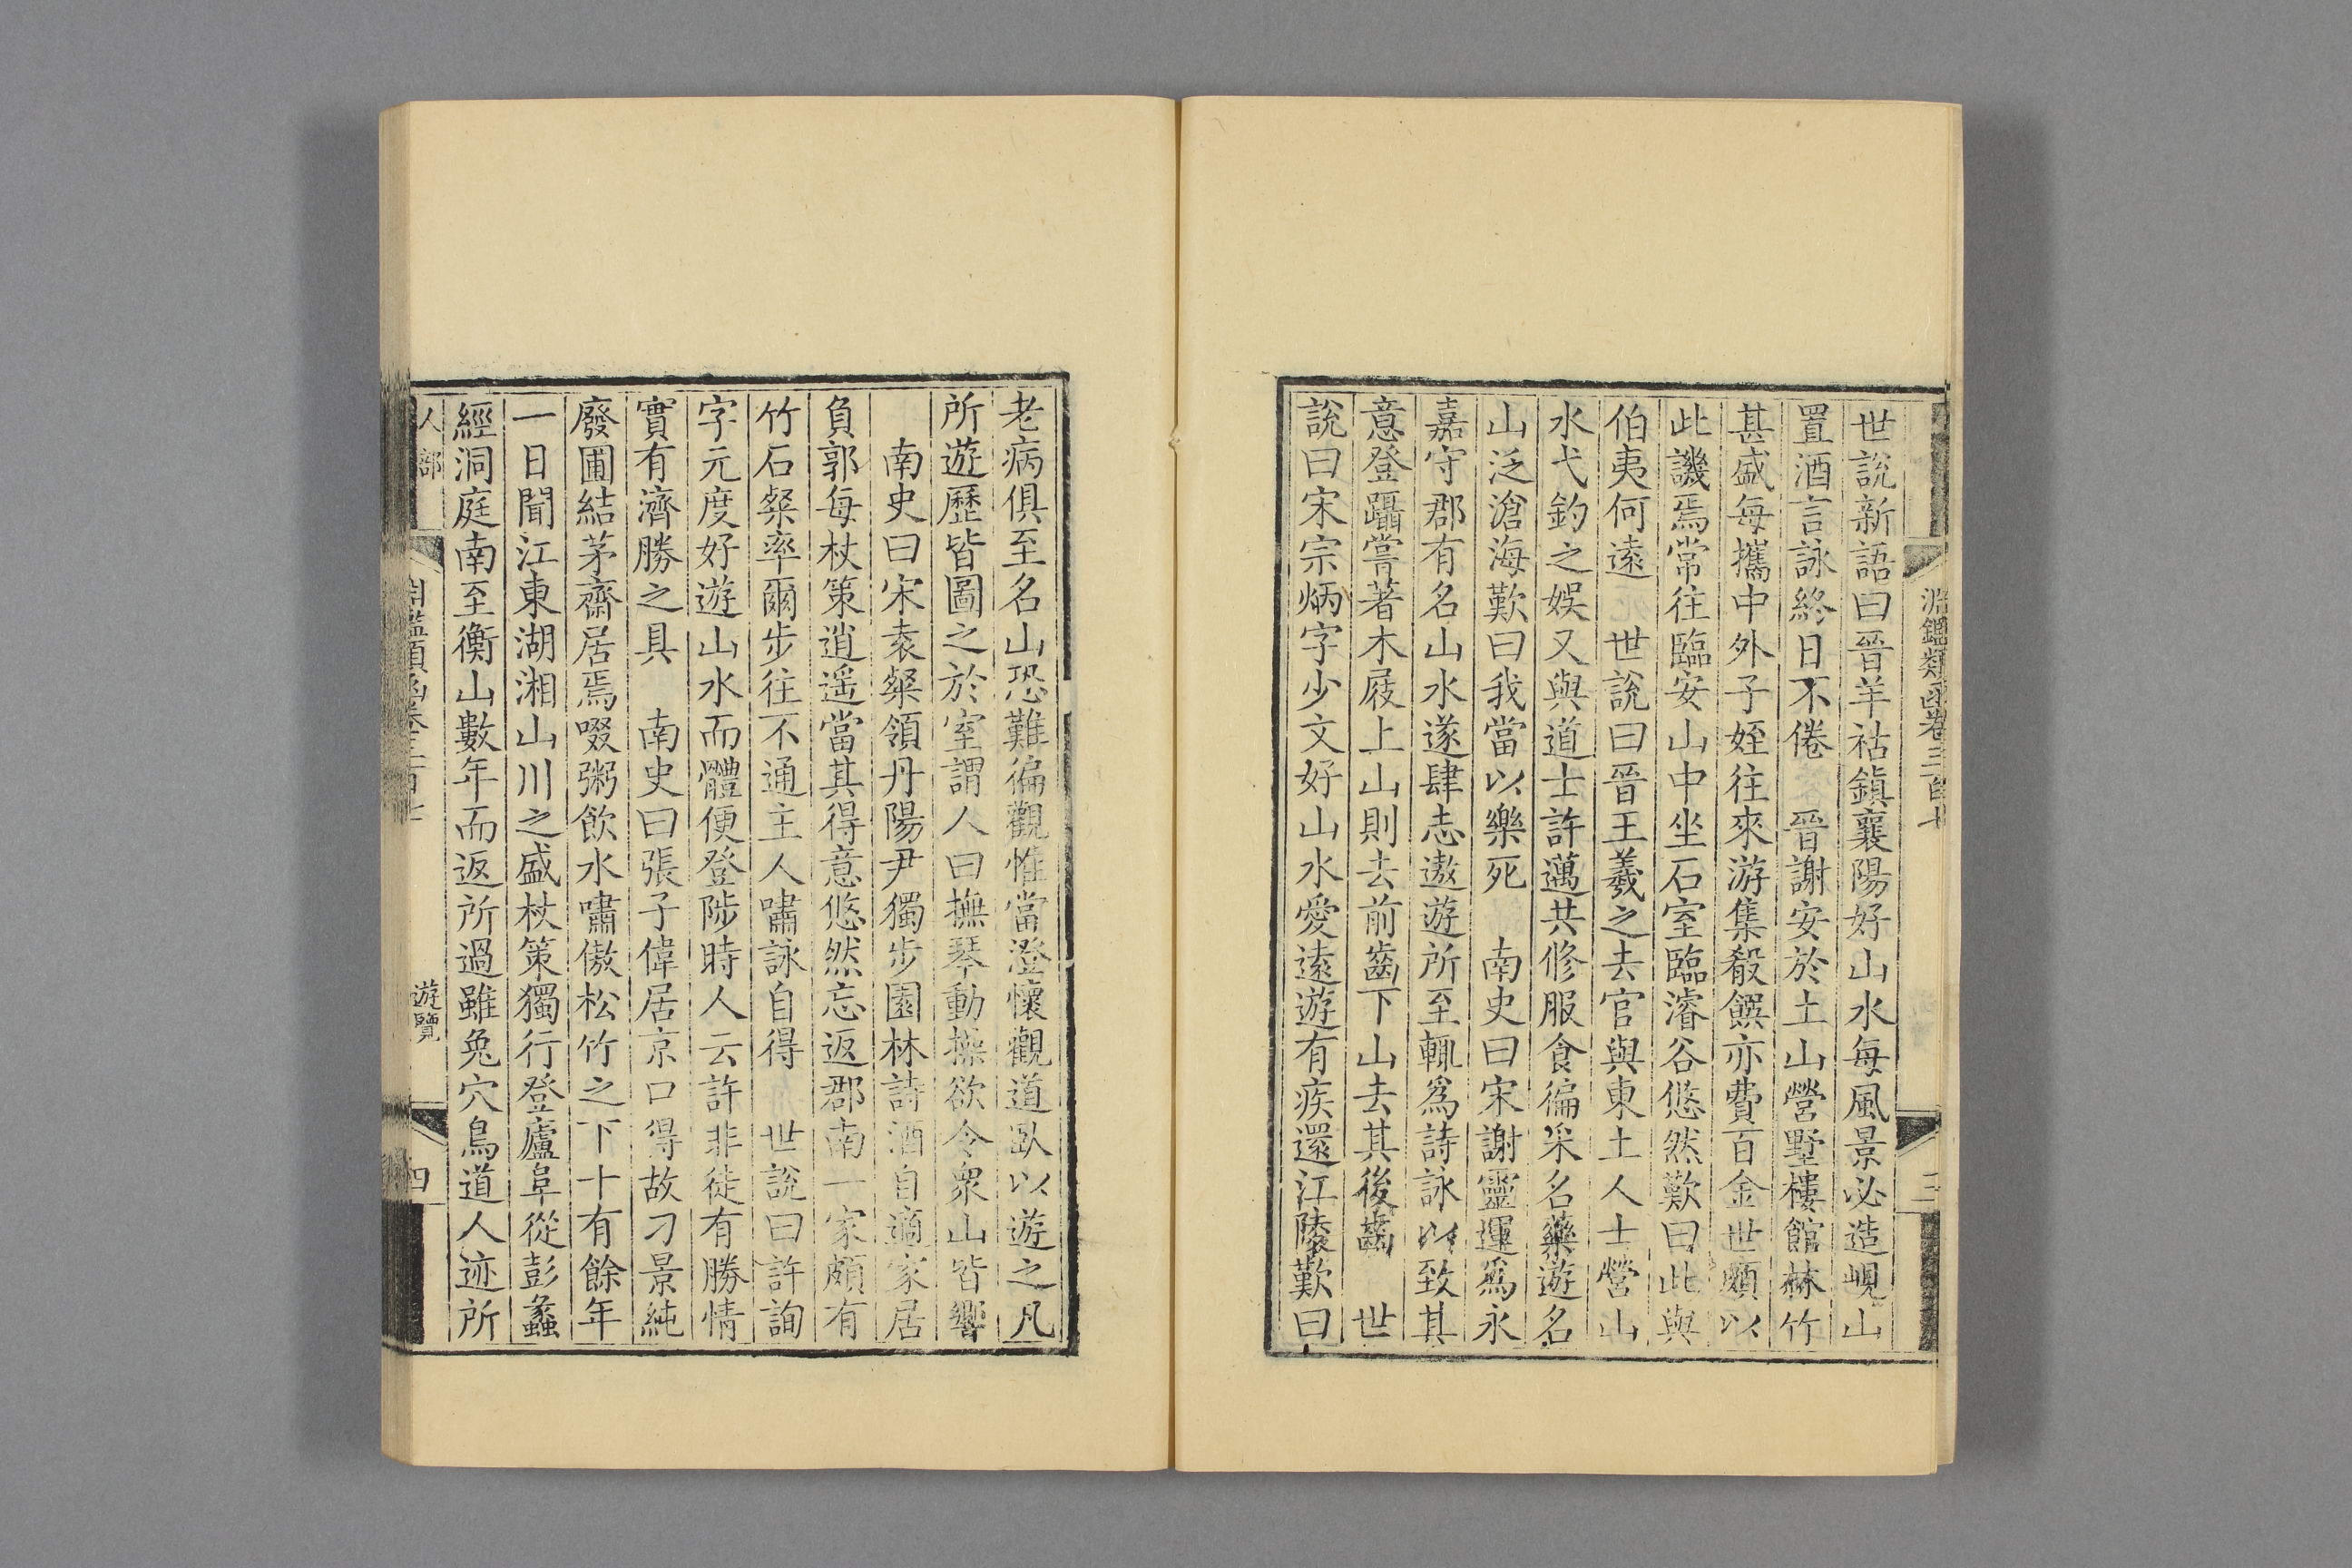 淵鑑類函卷三百七
三
世說新語曰晉羊祜鎮襄陽好山水每風景必造峴山
置酒言詠終日不倦　晉謝安於土山營墅樓館林竹
甚盛每攜中外子姪往來游集殽饌亦費百金世頗以
此譏焉常往臨安山中坐石室臨濬谷悠然歎曰此與
伯夷何遠　世說曰晉王羲之去官與東土人士營山
水弋釣之娛又與道士許邁共修服食徧采名藥遊名
山泛滄海歎曰我當以樂死　南史曰宋謝靈運爲永
嘉守郡有名山水遂肆志遨遊所至輒爲詩詠以致其
意登躡嘗著木屐上山則去前齒下山去其後齒　世
說曰宋宗炳字少文好山水愛遠遊有疾還江陵歎曰
老病俱至名山恐難徧觀惟當澄懷觀道臥以遊之凡
所遊歷皆圖之於室謂人曰撫琴動操欲令衆山皆響
南史曰宋袁粲領丹陽尹獨步園林詩酒自適家居
負郭每杖策逍遥當其得意悠然忘返郡南一家頗有
竹石粲率爾步往不通主人嘯詠自得　世說曰許詢
字元度好遊山水而體便登陟時人云許非徒有勝情
實有濟勝之具　南史曰張子偉居京口得故刁景純
廢圃結茅齋居焉啜粥飲水嘯傲松竹之下十有餘年
一日聞江東湖湘山川之盛杖策獨行登廬阜從彭蠡
經洞庭南至衡山數年而返所過雖兔穴鳥道人迹所
人部
鑑類函卷三百七
遊覽
四